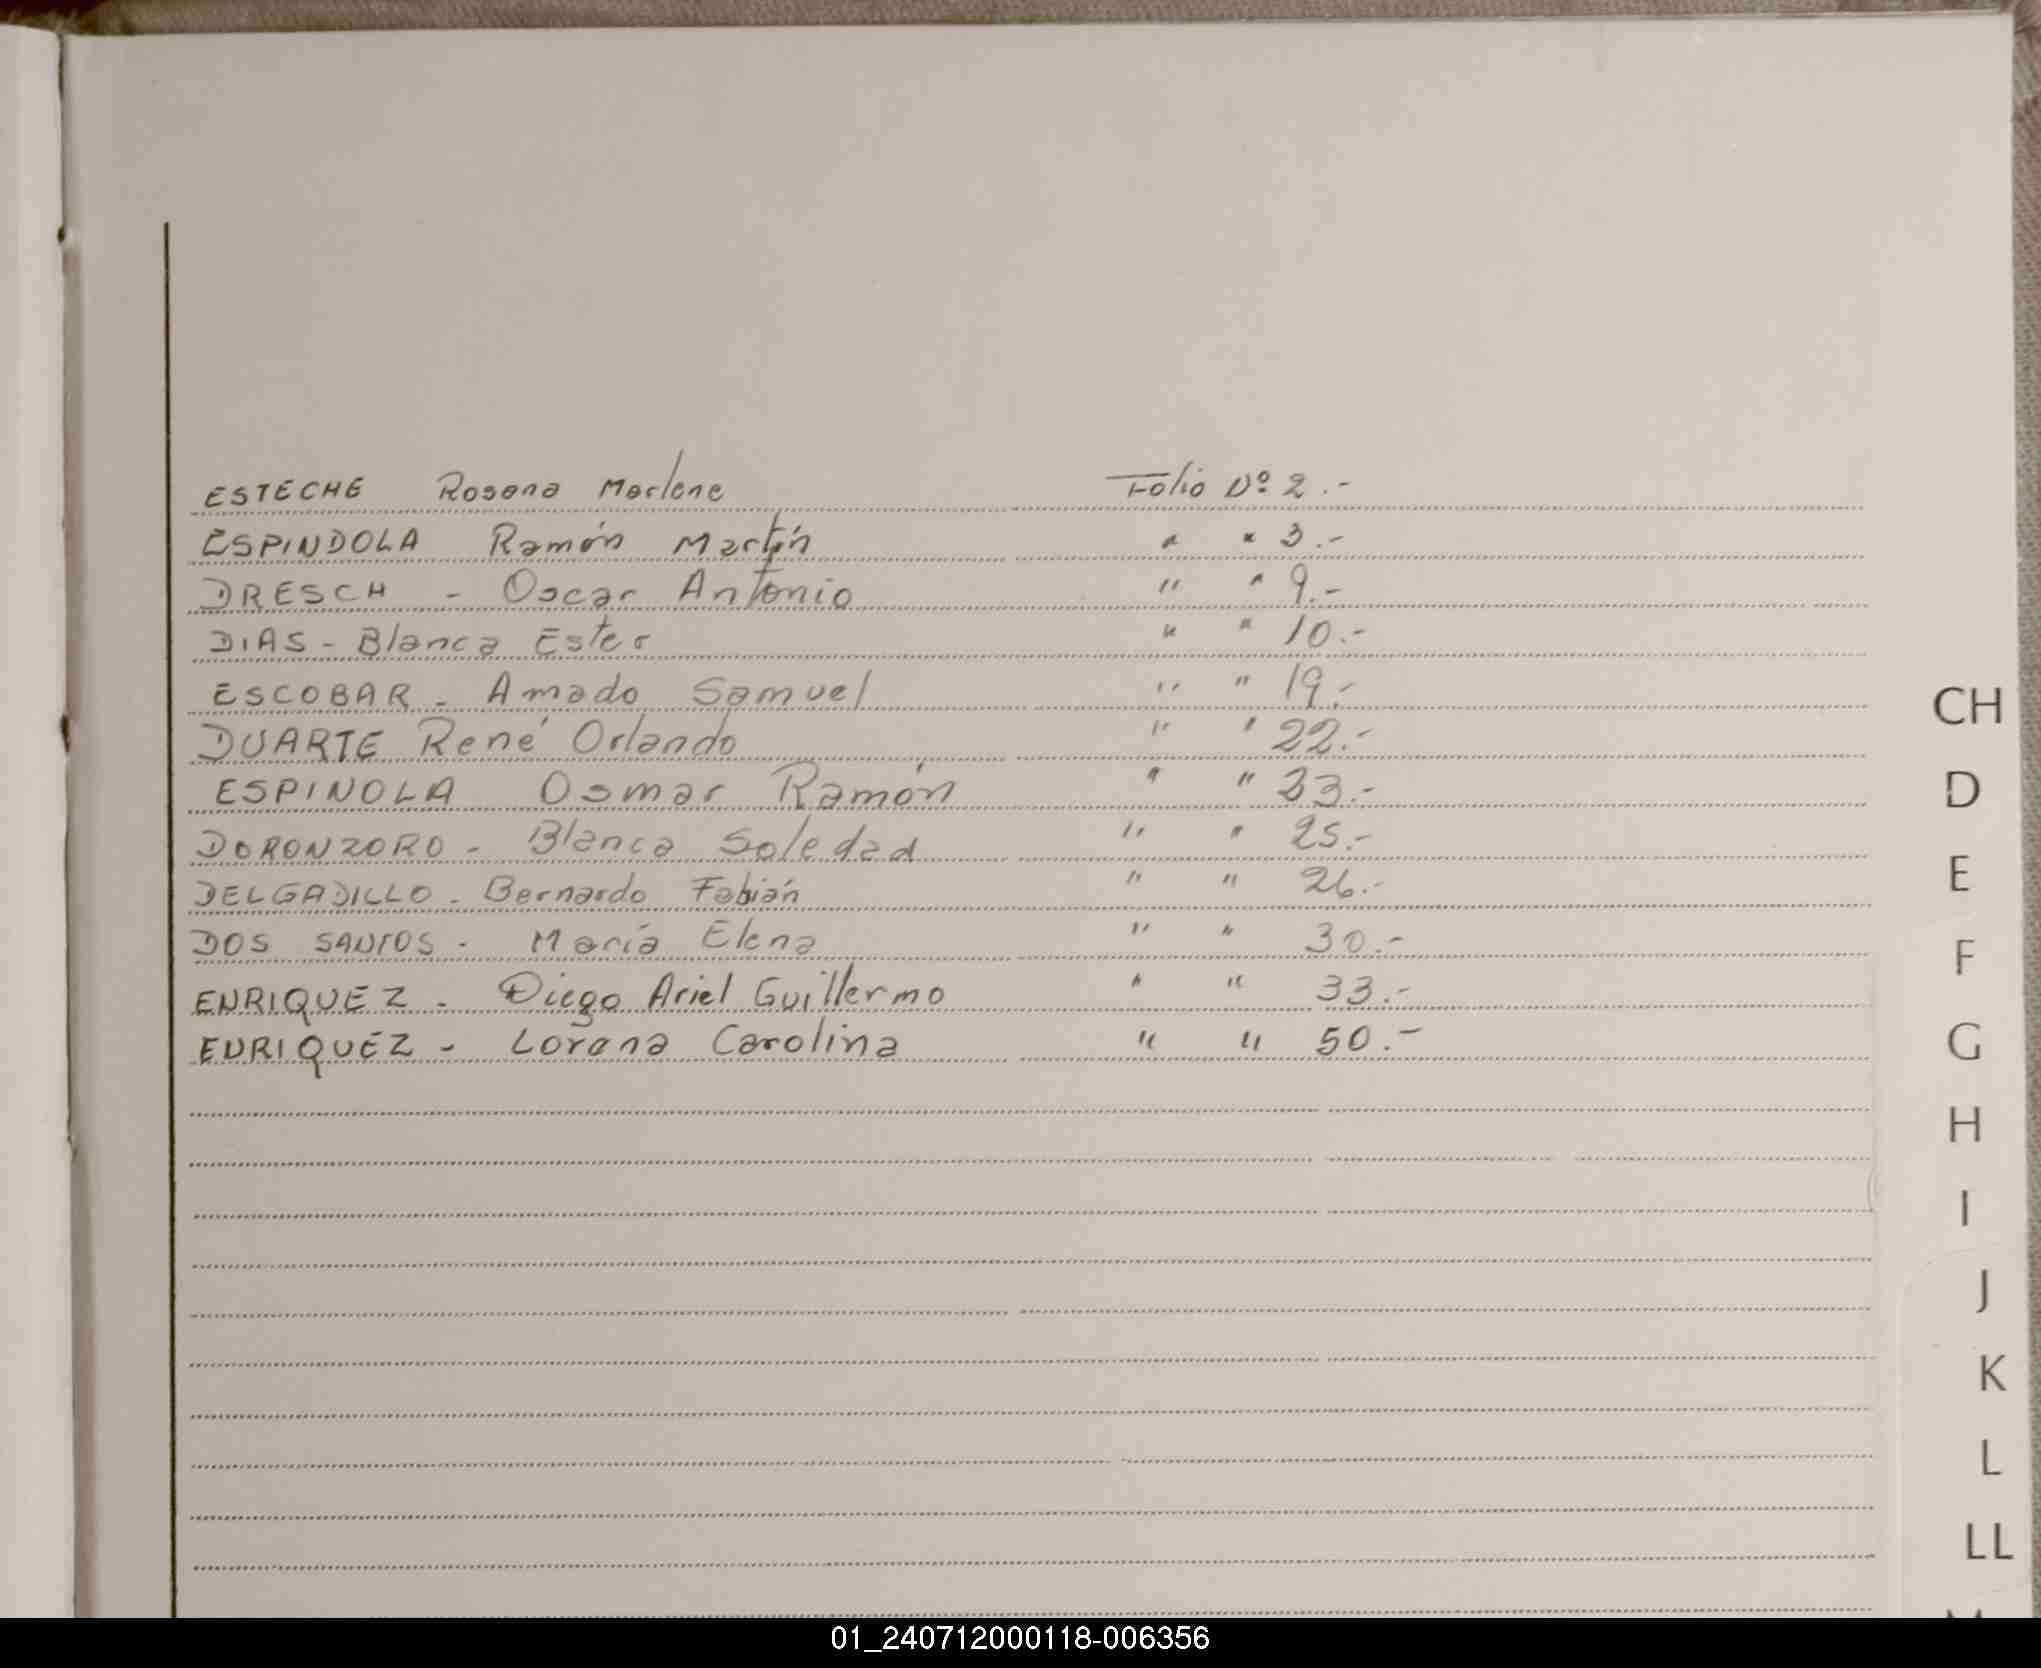 ESTECHE Rosana Marlene Folio Nº 2.-
ESPINDOLA Ramón Martín " " 3.-
DRESCH - Oscar Antonio " " 9.-
DIAS - Blanca Ester " " 10.-
ESCOBAR - Amado Samuel " " 19.-
DUARTE René Orlando " " 22.-
ESPINOLA Osmar Ramón " " 23.-
DORONZORO - Blanca Soledad " " 25.-
DELGADILLO - Bernardo Fabián " " 26.-
DOS SANTOS - María Elena " " 30.-
ENRIQUEZ - Diego Ariel Guillermo " " 33.-
ENRIQUEZ - Lorena Carolina " " 50.-
CH
D
E
F
G
H
I
J
K
L
LL
01_240712000118-006356